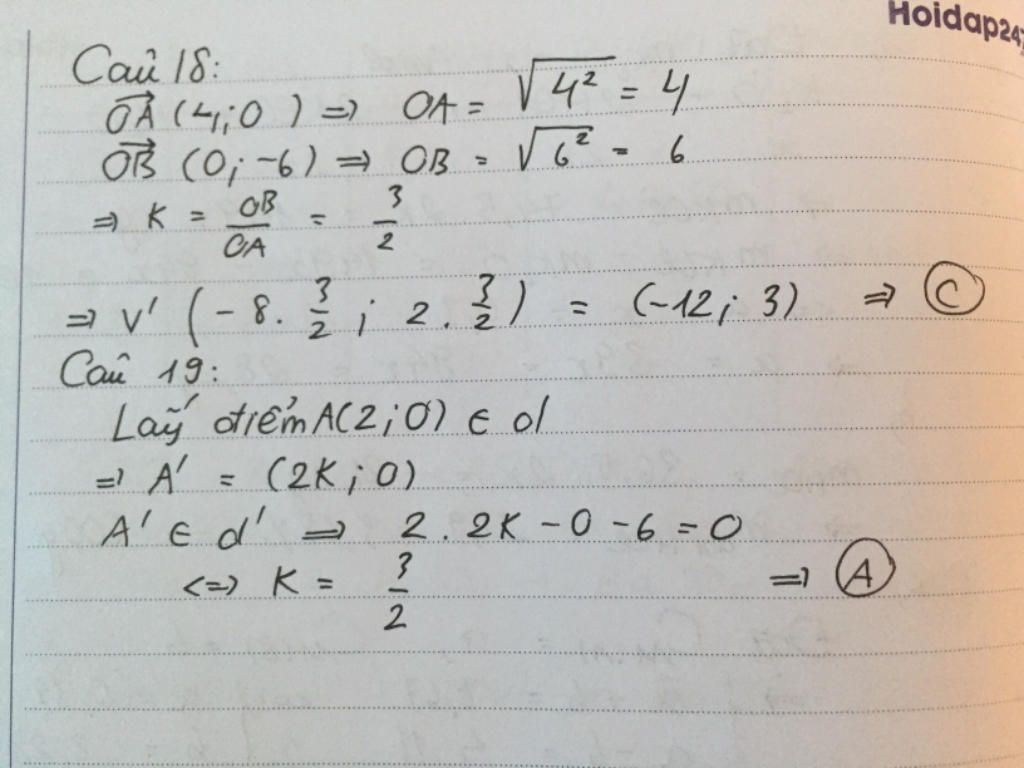 Hoidap247
Câu 18:
OA (4; 0) => OA = √4² = 4
OB (0; -6) => OB = √6² = 6
=> K = OB/OA = 3/2
=> V' (-8. 3/2 ; 2. 3/2) = (-12; 3) => C
Câu 19:
Lấy điểm A(2; 0) ∈ d
=> A' = (2K; 0)
A' ∈ d' => 2. 2K - 0 - 6 = 0
<=> K = 3/2 => A